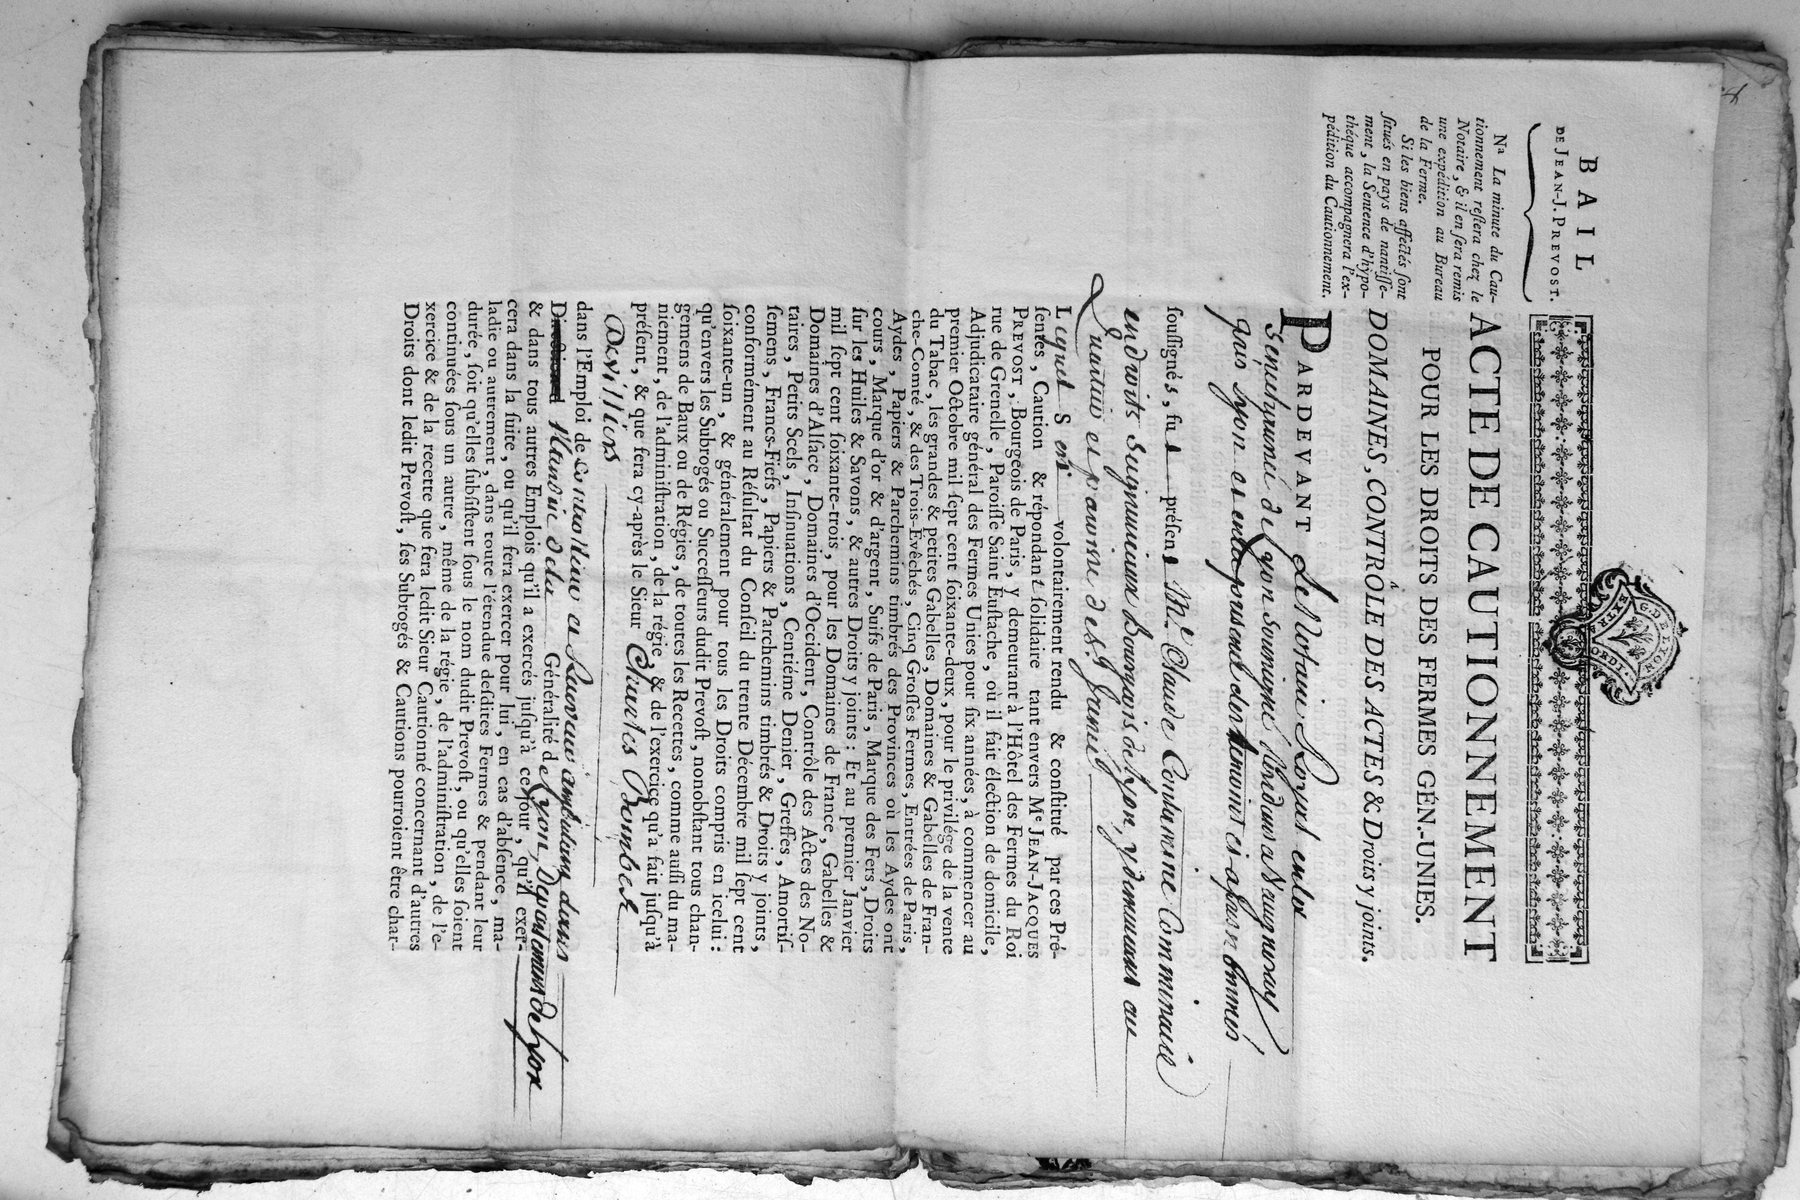 BAIL
DE JEAN-J. PREVOST.
Nª La minute du Cau-
tionnement reſtera chez le
Notaire, & il en ſera remis
une expédition au Bureau
de la Ferme.
Si les biens affectés ſont
ſitués en pays de nantiſſe-
ment, la Sentence d'hypo-
théque accompagnera l'ex-
pédition du Cautionnement.
G. DE LYON
EXTRAORDI.
ACTE DE CAUTIONNEMENT
POUR LES DROITS DES FERMES GÉN.-UNIES.
DOMAINES, CONTRÔLE DES ACTES & Droits y joints.
PARDEVANT Le Notaire Royal en la
Sénéchaussée de Lyon soussigné résidant a Vaugneray
pres Lyon et en la présence des témoins ci-apres nommés
ſouſſignés, fut préſent Mre Claude Contamine Commissaire
en droits seigneuriaux Bourgeois de Lyon, y demeurant au
et paroisse de St.
Lequel S'est volontairement rendu & conſtitué par ces Pré-
ſentes, Caution & répondant ſolidaire tant envers Me JEAN-JACQUES
PREVOST, Bourgeois de Paris, y demeurant à l'Hôtel des Fermes du Roi
rue de Grenelle, Paroiſſe Saint Euſtache, où il fait élection de domicile,
Adjudicataire général des Fermes Unies pour ſix années, à commencer au
premier Octobre mil ſept cent ſoixante-deux, pour le privilége de la vente
du Tabac, les grandes & petites Gabelles, Domaines & Gabelles de Fran-
che-Comté, & des Trois-Evêchés, Cinq Groſſes Fermes, Entrées de Paris,
Aydes, Papiers & Parchemins timbrés des Provinces où les Aydes ont
cours, Marque d'or & d'argent, Suifs de Paris, Marque des Fers, Droits
ſur les Huiles & Savons, & autres Droits y joints : Et au premier Janvier
mil ſept cent ſoixante-trois, pour les Domaines de France, Gabelles &
Domaines d'Alſace, Domaines d'Occident, Contrôle des Actes des No-
taires, Petits Scels, Inſinuations, Centiéme Denier, Greffes, Amortiſ-
ſemens, Francs-Fiefs, Papiers & Parchemins timbrés & Droits y joints,
conformément au Réſultat du Conſeil du trente Décembre mil ſept cent
ſoixante-un, & généralement pour tous les Droits compris en icelui :
qu'envers les Subrogés ou Succeſſeurs dudit Prevoſt, nonobſtant tous chan-
gemens de Baux ou de Régies, de toutes les Recettes, comme auſſi du ma-
niement, de l'adminiſtration, de la régie & de l'exercice qu'a fait juſqu'à
préſent, & que fera cy-après le Sieur Charles Bomber
Devilliers
dans l'Emploi de Controlleur et Receveur ambulant dans
Généralité de Lyon, Departement de Lyon
& dans tous autres Emplois qu'il a exercés juſqu'à ce jour, qu'il exer-
cera dans la ſuite, ou qu'il fera exercer pour lui, en cas d'abſence, ma-
ladie ou autrement, dans toute l'étendue deſdites Fermes & pendant leur
durée, ſoit qu'elles ſubſiſtent ſous le nom dudit Prevoſt, ou qu'elles ſoient
continuées ſous un autre, même de la régie, de l'adminiſtration, de l'e-
xercice & de la recette que fera ledit Sieur Cautionné concernant d'autres
Droits dont ledit Prevoſt, ſes Subrogés & Cautions pourroient être char-